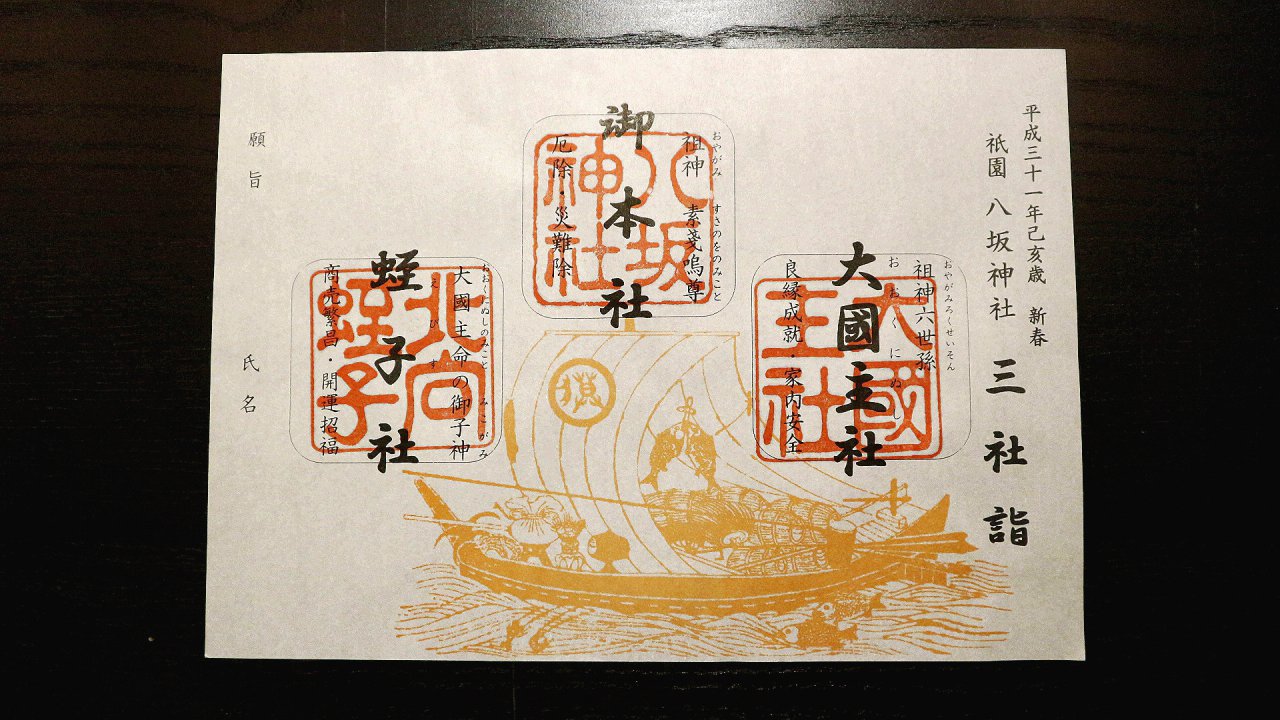 平成三十一年己亥歳　新春
祇園　八坂神社　三社詣
おやがみろくせいそん
祖神六世孫
おおくにぬし
大國主社
良縁成就・家内安全
大國
主社
おやがみ　すさのをのみこと
祖神　素戔嗚尊
御本社
厄除・災難除
八坂
神社
おおくにぬしのみこと　みこがみ
大國主命の御子神
えびす
蛭子社
商売繁昌・開運招福
北向
蛭子
願旨
氏名